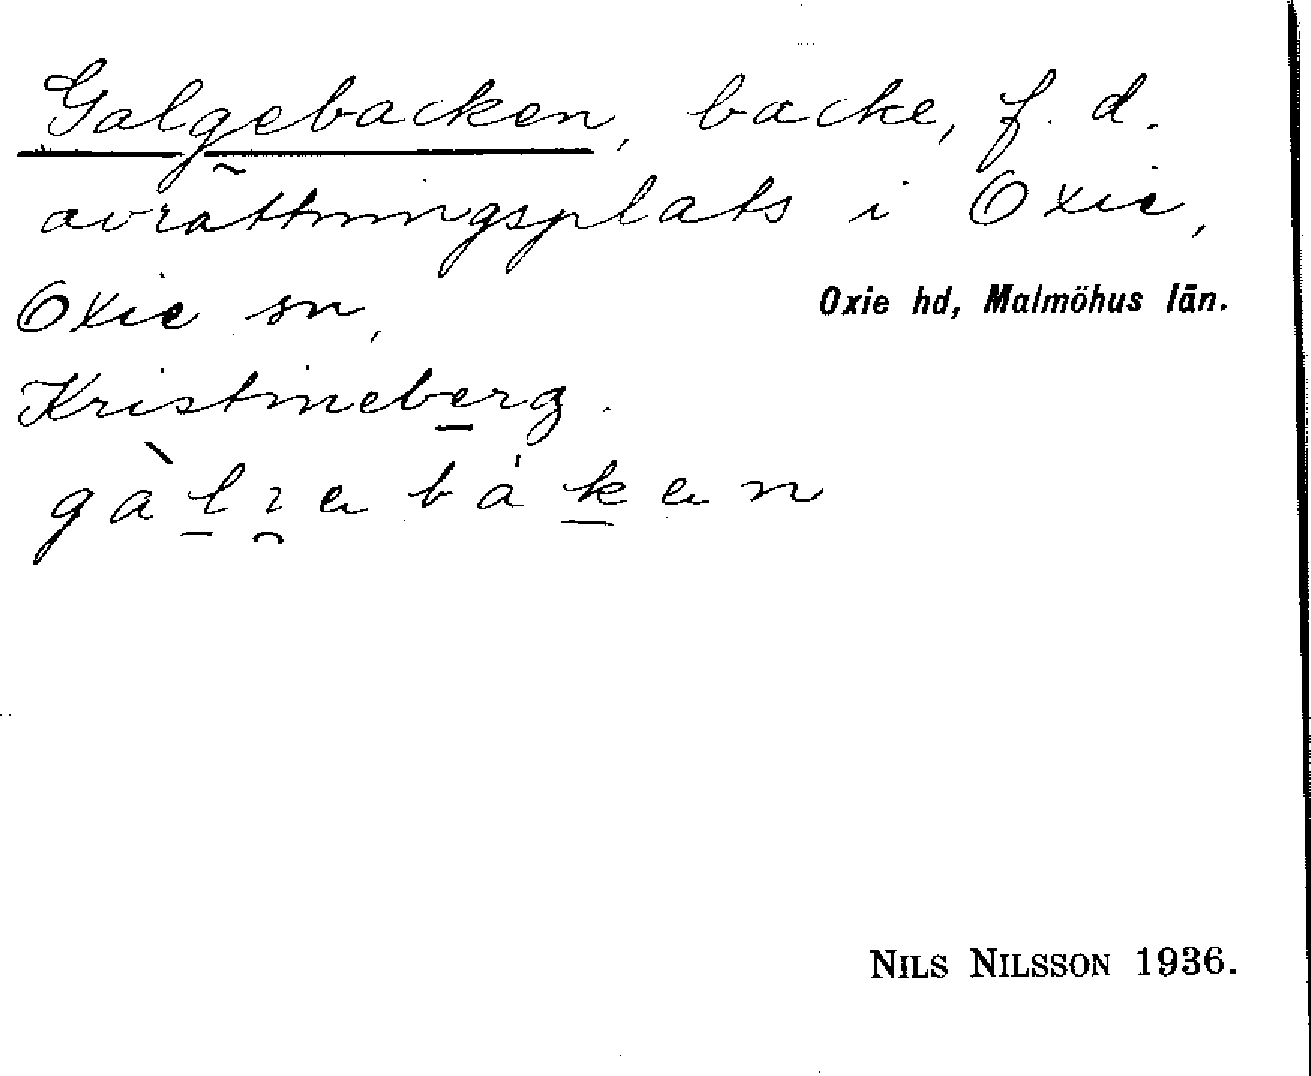 Galgebacken, backe, f. d.
avrättningsplats i Oxie,
Oxie sn, Oxie hd, Malmöhus län.
Kristineberg.
NILS NILSSON 1936.